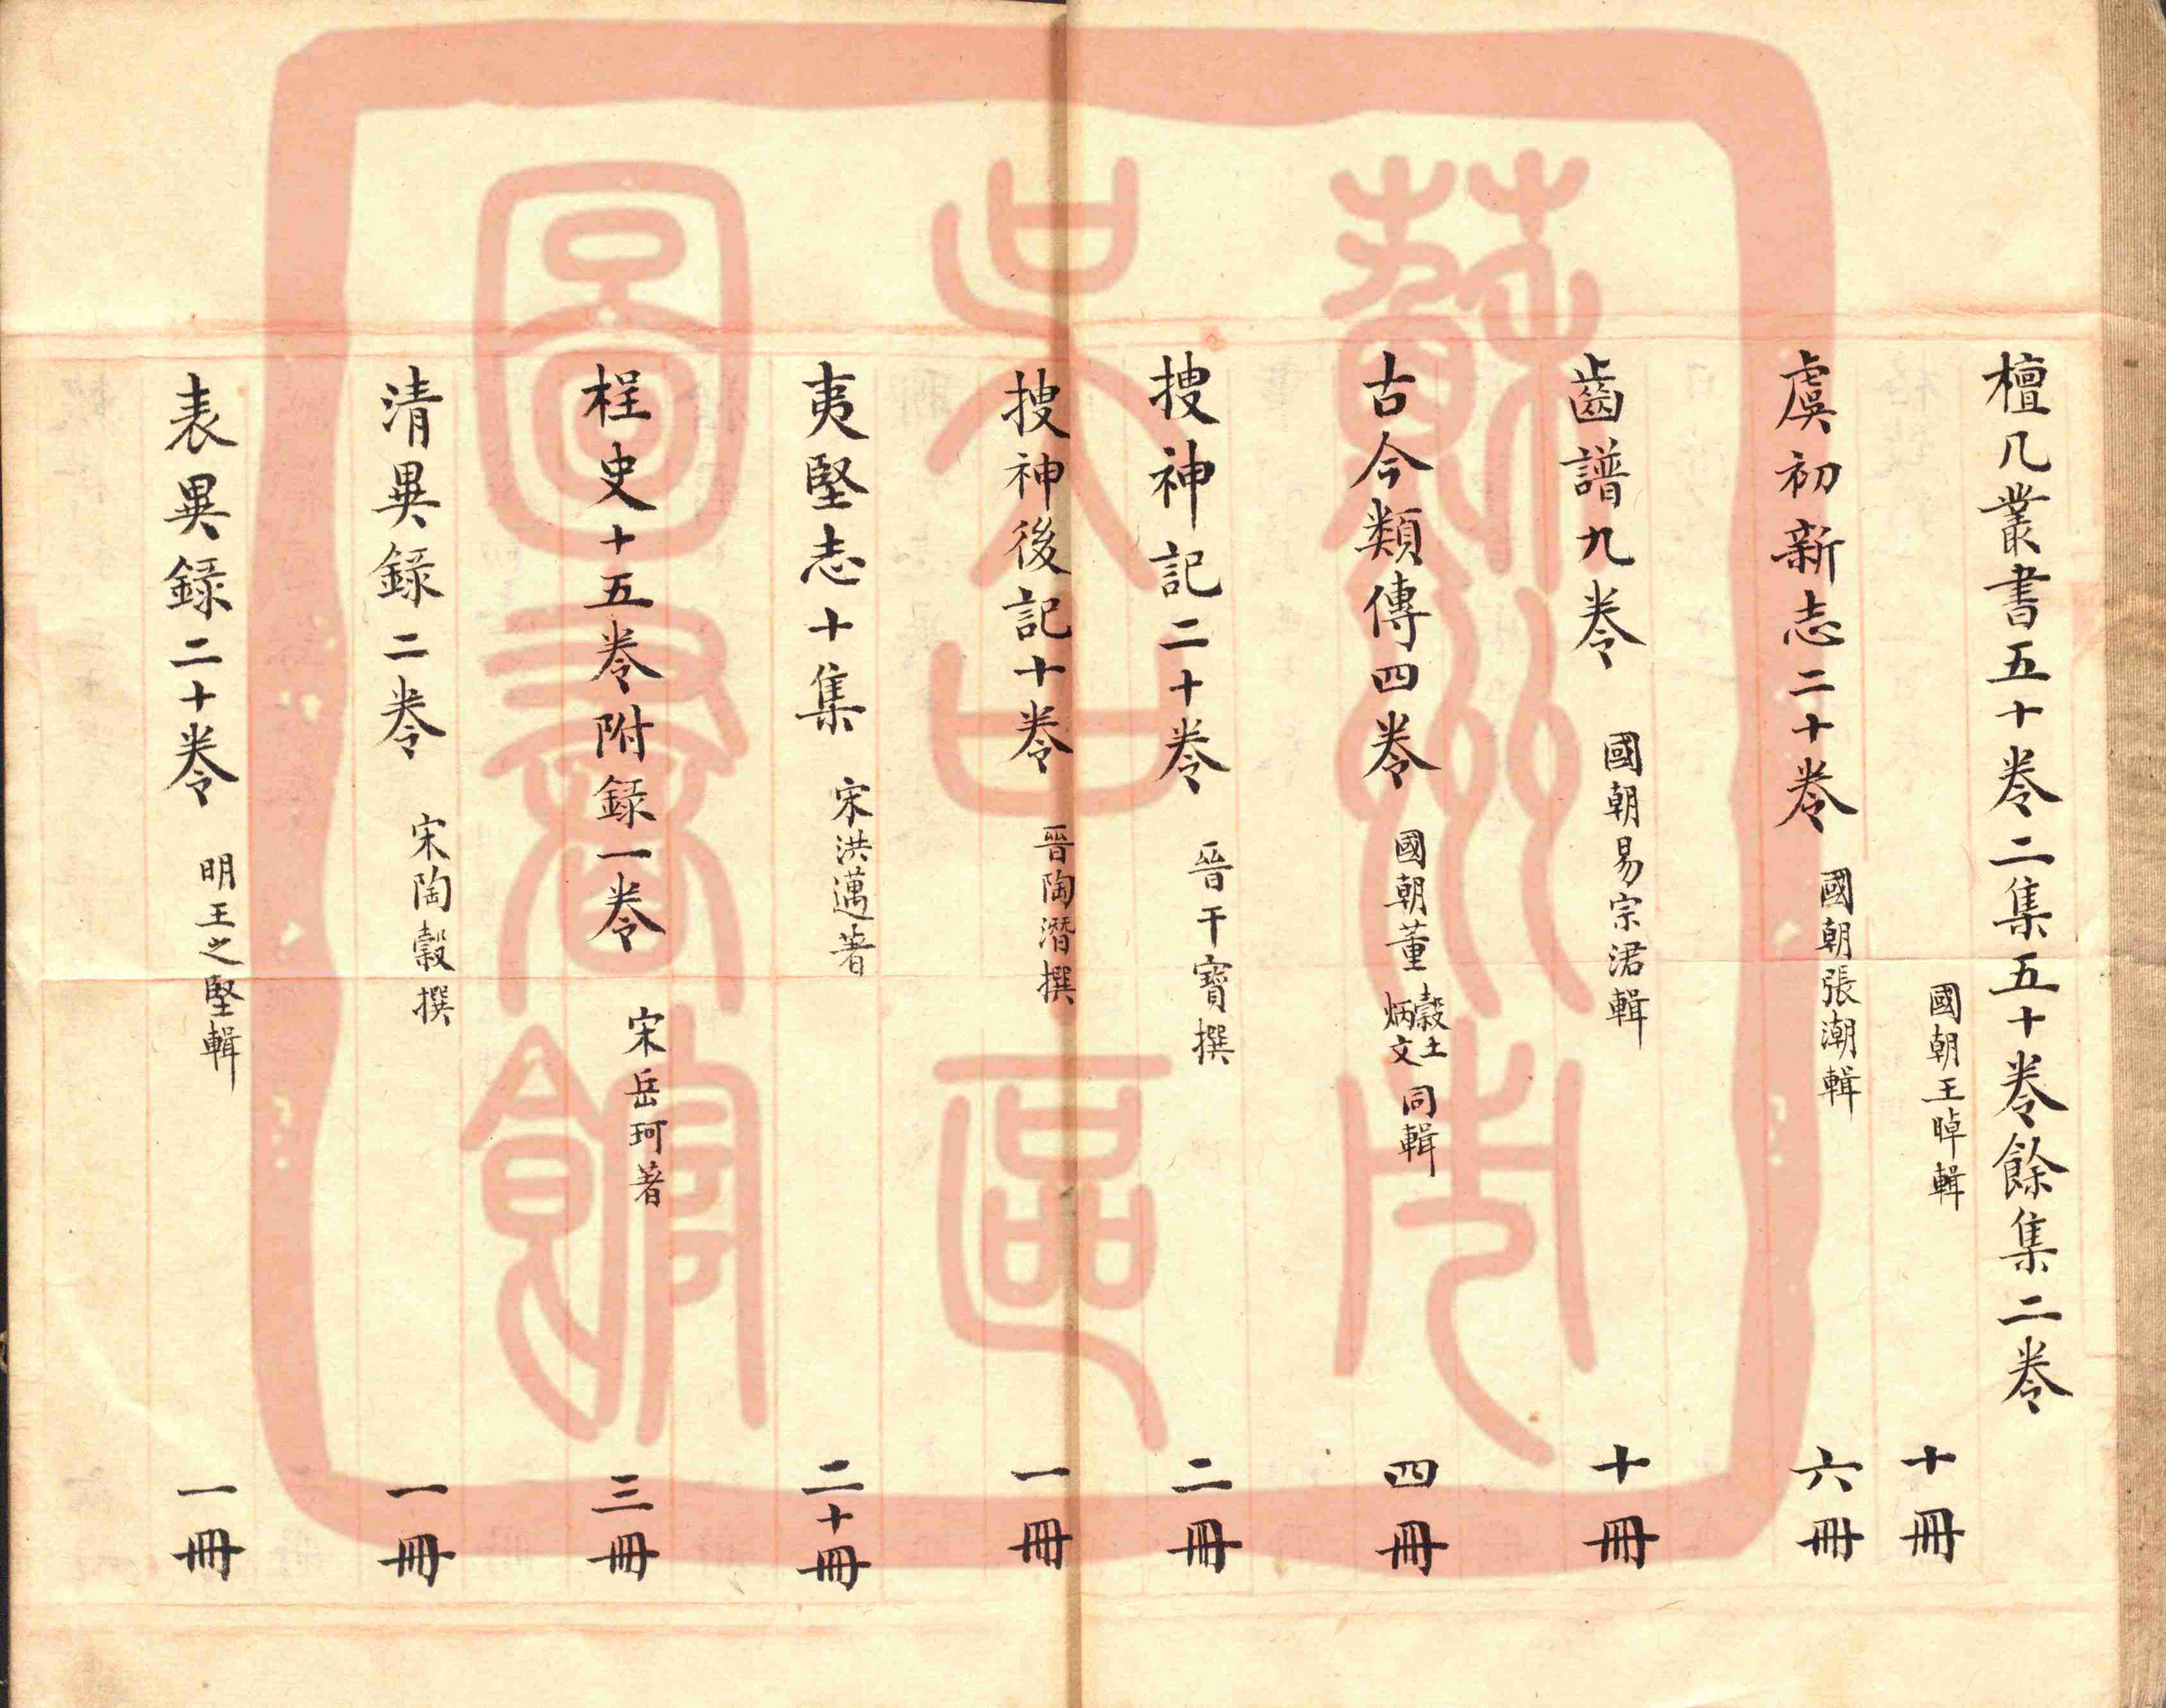 檀几叢書五十卷二集五十卷餘集二卷
國朝王晫輯 十冊
虞初新志二十卷 國朝張潮輯 六冊
齒譜九卷 國朝易宗涒輯 十冊
古今類傳四卷 國朝董穀士炳文同輯 四冊
搜神記二十卷 晉干寶撰 二冊
搜神後記十卷 晉陶潛撰 一冊
夷堅志十集 宋洪邁著 二十冊
桯史十五卷附録一卷 宋岳珂著 三冊
清異録二卷 宋陶穀撰 一冊
表異録二十卷 明王之堅輯 一冊
蘇州市
吳中區
圖書館